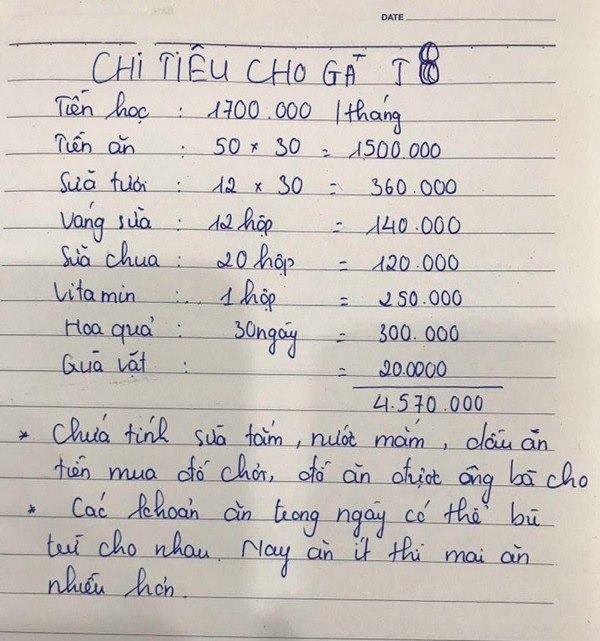 DATE
CHI TIÊU CHO GÀ T 8
Tiền học : 1700.000 /tháng
Tiền ăn : 50 × 30 = 1500.000
Sữa tươi : 12 × 30 = 360.000
Váng sữa : 12 hộp = 140.000
Sữa chua : 20 hộp = 120.000
Vitamin : 1 hộp = 250.000
Hoa quả : 30 ngày = 300.000
Quà vặt : = 20.0000
4.570.000
* Chưa tính sữa tắm, nước mắm, dầu ăn
tiền mua đồ chơi, đồ ăn được ông bà cho
* Các khoản ăn trong ngày có thể bù
trừ cho nhau. Nay ăn ít thì mai ăn
nhiều hơn.